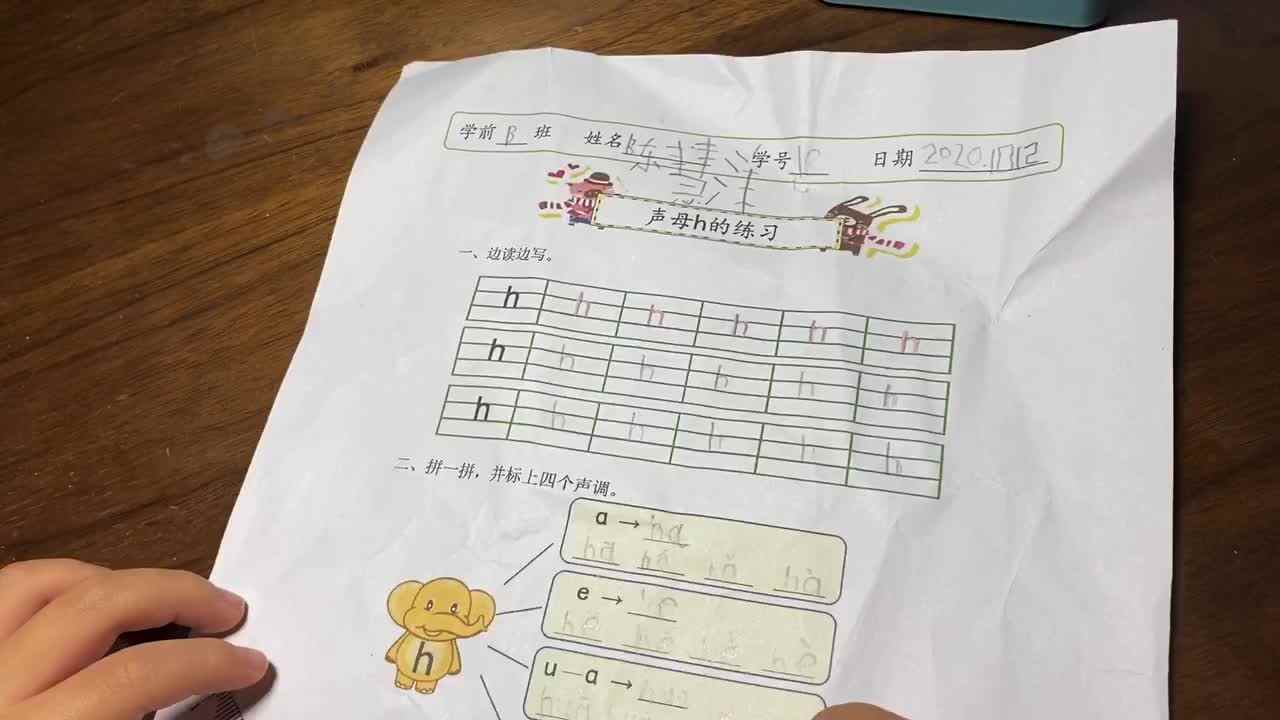 学前 B 班 姓名 陈 学号 日期 2020.11月12
声母h的练习
一、边读边写。
h h h h h h
h h h h h h
h h h h h h
二、拼一拼，并标上四个声调。
a → ha
hā há hǎ hà
e → he
hē hé hě hè
h
u—a → hua
huā